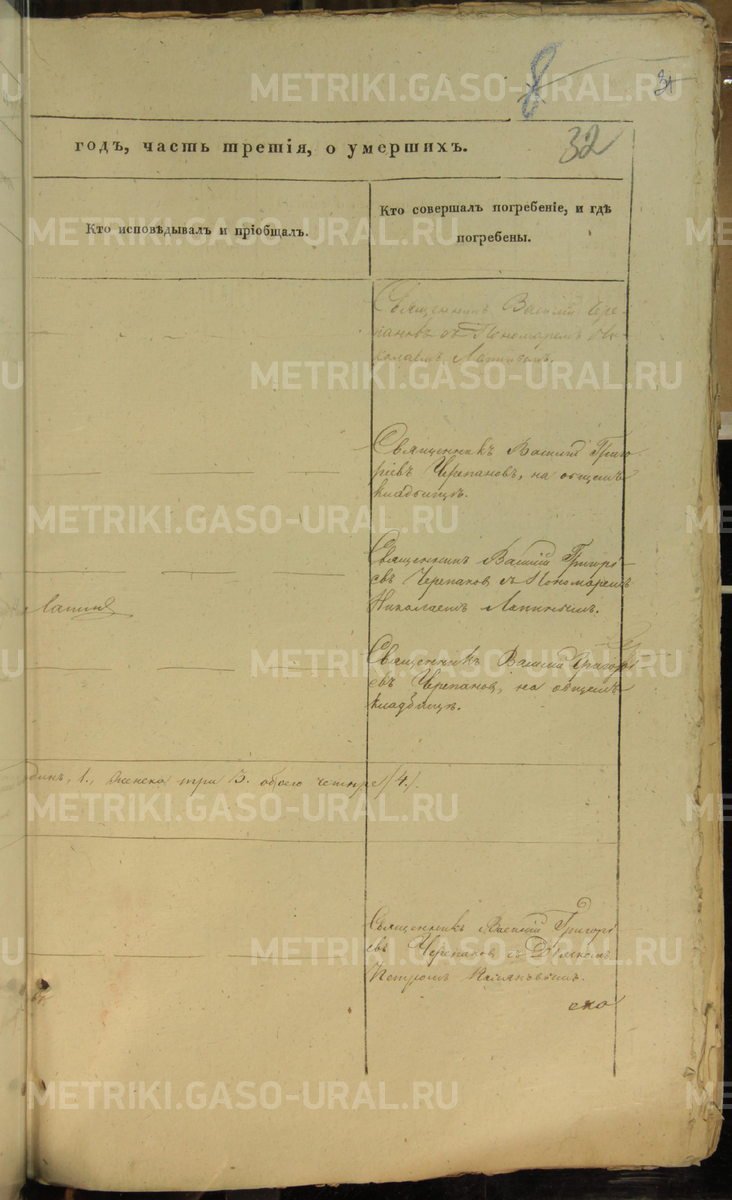 8
32
годъ, часть третія, о умершихъ.
Кто исповѣдывалъ и пріобщалъ.
Кто совершалъ погребеніе, и гдѣ
погребены.
Священникъ Василій Чере-
пановъ съ Пономаремъ Ни-
колаемъ Лапинымъ.
Священникъ Василій Григо-
ріевъ Черепановъ, на общемъ
кладбищѣ.
Священникъ Василій Григорі-
евъ Черепановъ съ Пономаремъ
Николаемъ Лапинымъ.
Лапинъ
Священникъ Василій Григорі-
евъ Черепановъ, на общемъ
кладбищѣ.
динъ, 1., женска три 3. обоего четыре /4./
Священникъ Василій Григорі-
евъ Черепановъ съ Дьякомъ
Петромъ
ско
METRIKI.GASO-URAL.RU